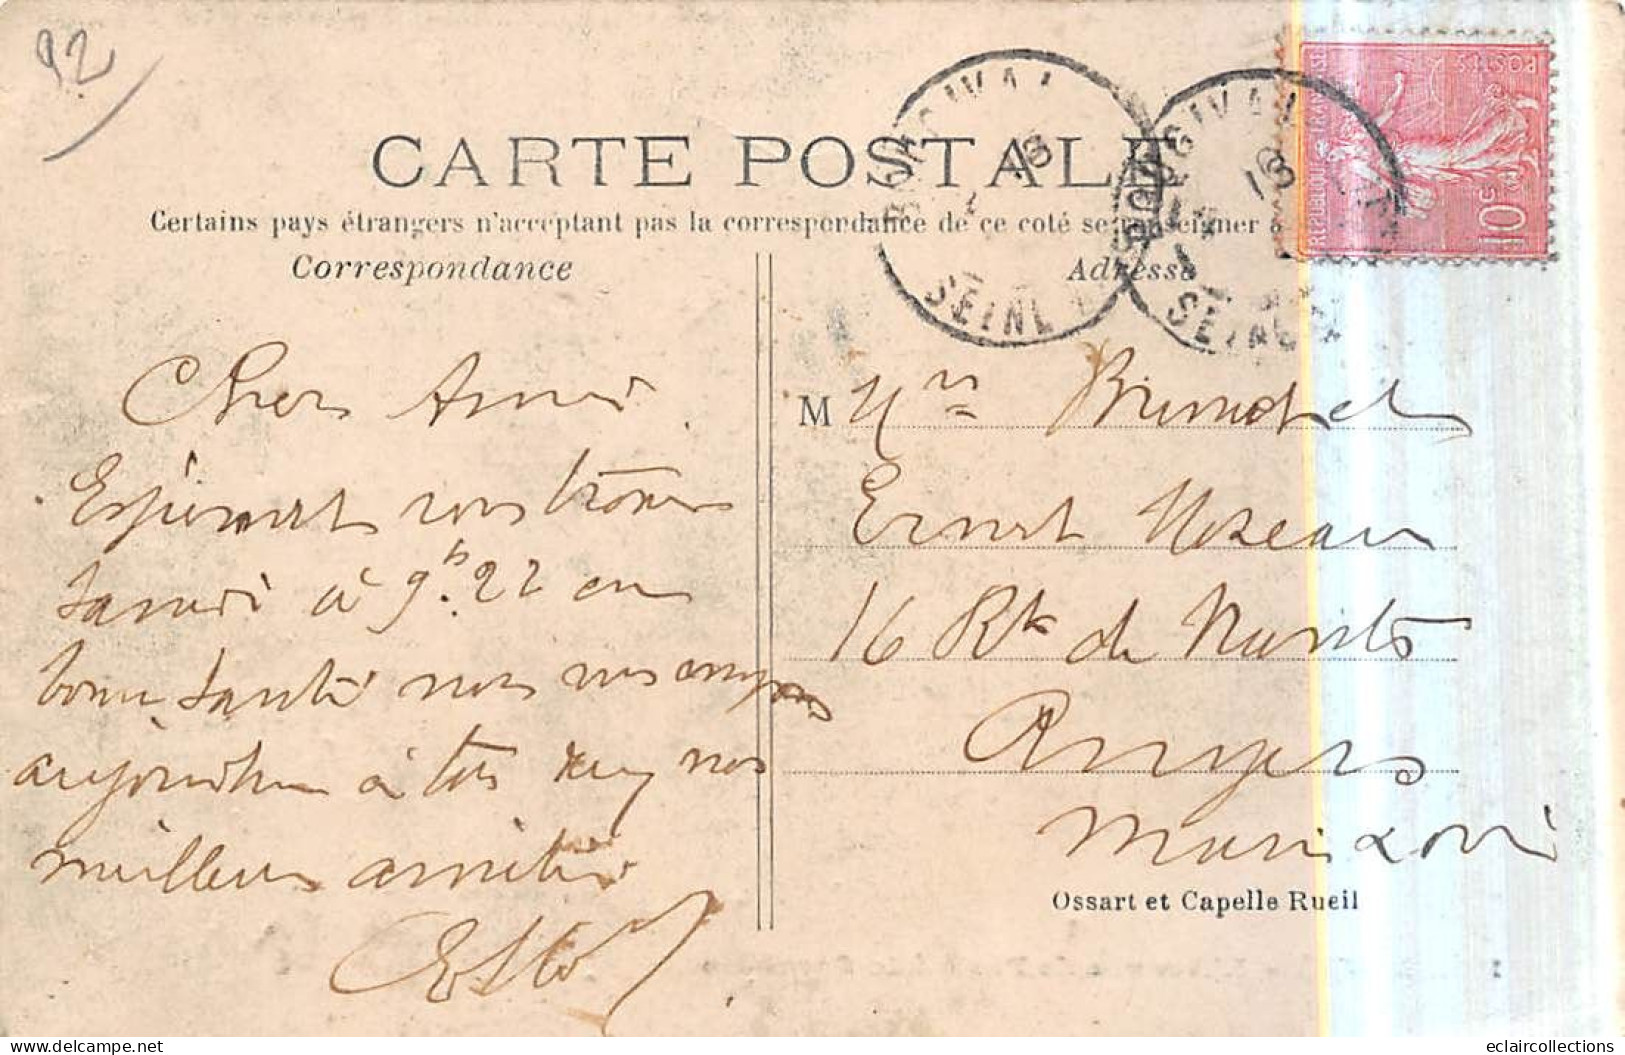 92
CARTE POSTALE
Certains pays étrangers n'acceptent pas la correspondance de ce coté se renseigner à
Correspondance
Adresse
BOUGIVAL
SEINE
BOUGIVAL
SEINE
18
REPUBLIQUE FRANÇAISE
POSTES
10c
Chers Amis
Espérant vous trouver
Samedi à 9h.22 en
bonne santé nous vous envoyons
aujourd'hui à tous deux nos
meilleurs amitiés
M
Ernest Moreau
16 Rte de Nantes
Angers
Maine & Loire
Ossart et Capelle Rueil
eclaircollections